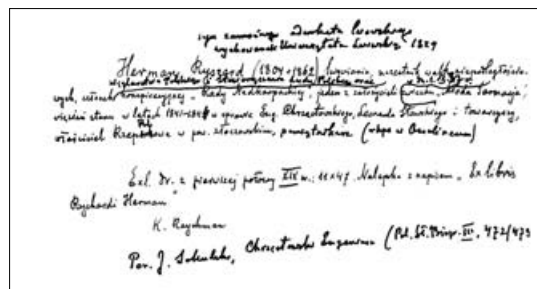 syn zamożnego Adwokata lwowskiego
wychowanek Uniwersytetu Lwowsk. 1829
Herman Ryszard (1804+1862) lwowianin, uczestnik walk niepodległościo-
wych, członek konspiracyjnej "Rady Nadkarpackiej", jeden z założycieli związku "Młoda Sarmacja";
więzień stanu w latach 1841-184 w sprawie Eug. Chrząstowskiego, Leonarda i towarzyszy,
właściciel w pow. złoczowskim, pamiętnikarz (rkps w Ossolineum)
Exl. dr. z pierwszej połowy XIX w.; 11x47. Nalepka z napisem "Ex libris
Rychardi Herman"
K. Reychman
Por. J. Sokulski, Chrząstowski Eugeniusz (Pol. Sł. Biogr. III, 472/473